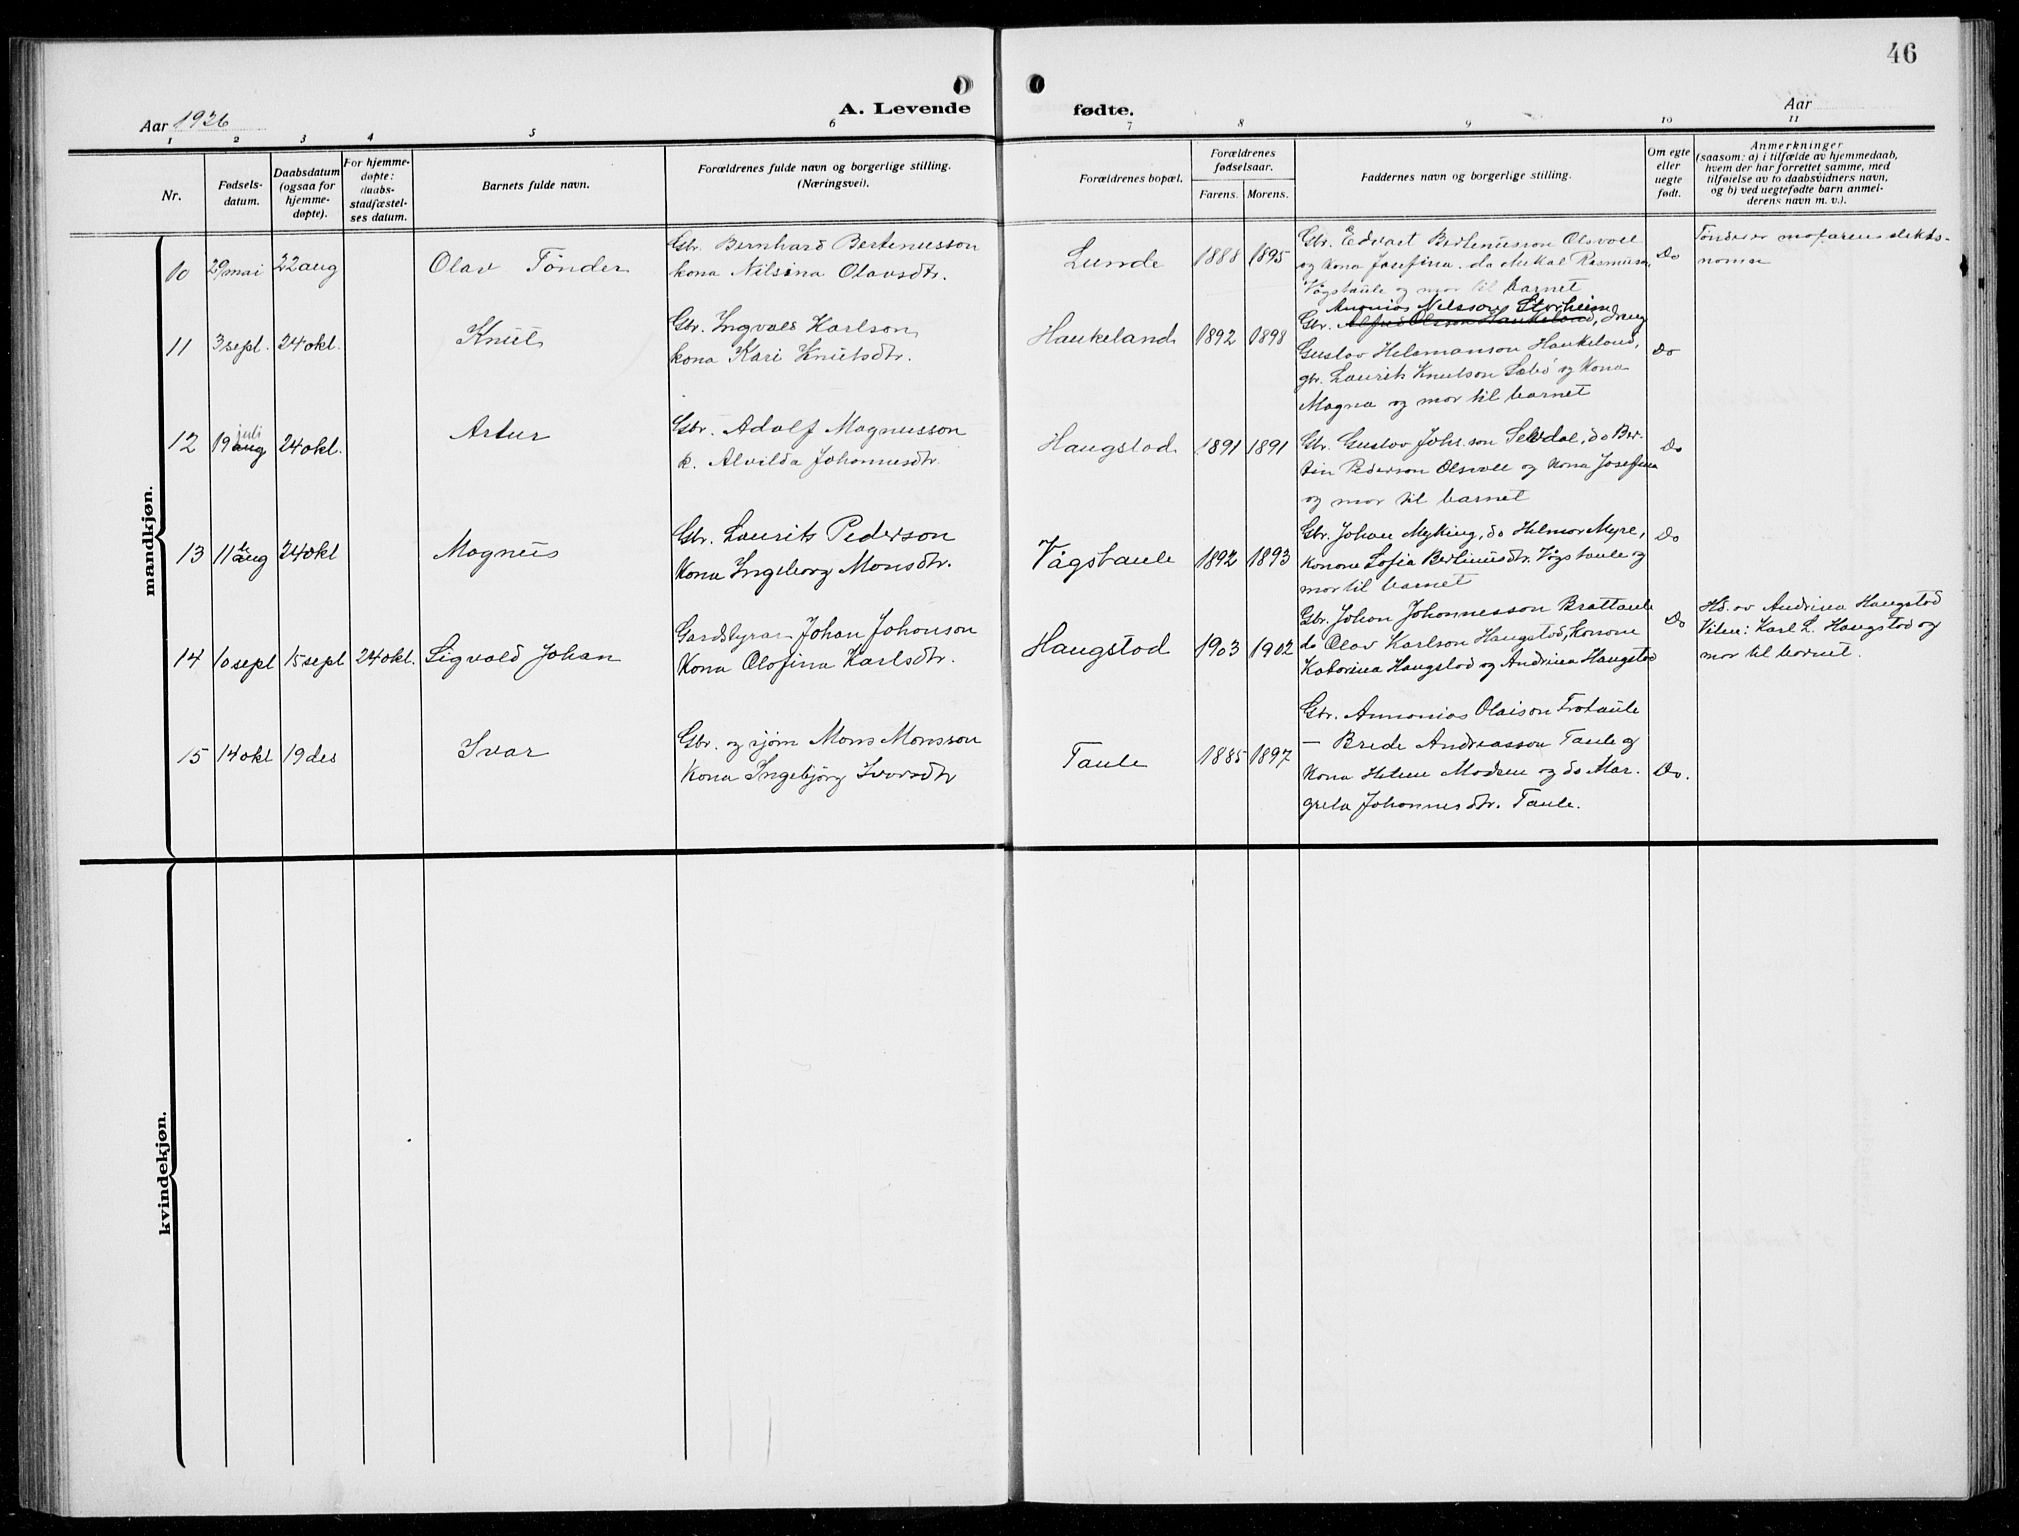 46
Aar 1926
A. Levende
fødte.
Aar
1 2 3 4 5 6 7 8 9 10 11
Nr.
Fødsels-
datum.
Daabsdatum
(ogsaa for
hjemme-
døpte).
For hjemme-
døpte:
daabs-
stadfæstel-
ses datum.
Barnets fulde navn.
Forældrenes fulde navn og borgerlige stilling.
(Næringsvei).
Forældrenes bopæl.
Forældrenes
fødselsaar.
Farens. Morens.
Faddernes navn og borgerlige stilling.
Om egte
eller
uegte
født.
Anmerkninger
(saasom: a) i tilfælde av hjemmedaab,
hvem der har forrettet samme, med
tilføielse av to daabsvidners navn,
og b) ved uegtefødte barn anmel-
derens navn m. v.).
mandkjøn.
10 29 mai 22 aug Olav Tønder
Gbr. Bernhard Bertinusson
kona Nilsina Olavsdtr.
Lunde 1888 1895
Gbr. Edvart Bertinusson Olsvoll
og kona Josefina. do Mikal Rasmusson
Vågstaule og mor til barnet
Do
Tønder er mofarens slekts-
namn
11 3 sept. 24 okt. Knut
Gbr. Ingvald Karlson
kona Kari Knutsdtr.
Haukeland 1892 1898
Nilsson Storheim
Gbr. Alfred Olson Haukeland, dreng
Gustav Helmanson Haukeland,
gbr. Laurits Knutson Sæbø og kona
Magna og mor til barnet
Do
12 19 aug juli 24 okt. Artur
Gbr. Adolf Magnusson
k. Alvilda Johannesdtr.
Haugstad 1891 1891
Gbr. Gustav Johs.son Selvdal, do Ber-
tin Pederson Olsvoll og kona Josefina
og mor til barnet
Do
13 11 aug 24 okt Magnus
Gbr. Laurits Pederson
Kona Ingeborg Monsdtr.
Vågstaule 1892 1893
Gbr. Johan Myking, do Helmer Myre,
konone Sofia Bertinusdtr. Vågstaule og
mor til barnet
Do
14 10 sept 15 sept 24 okt. Sigvald Johan
Gardstyrar Johan Johanson
Kona Olofina Karlsdtr.
Haugstad 1903 1902
Gbr. Johan Johannesson Brattaule
do Olav Karlson Haugstad, konone
Katarina Haugstad og Andrina Haugstad
Do
Hd. av Andrina Haugstad
Vitne: Karl L. Haugstad og
mor til barnet.
15 14 okt 19 des Ivar
Gbr. og sjøm Mons Monsson
Kona Ingebjørg Ivarsdtr
Taule 1885 1897
Gbr. Annanias Olaison Frotaule
— Brede Andreasson Taule og
kona Helene Madsen og do Mar-
greta Johannesdtr. Taule.
Do.
kvindekjøn.